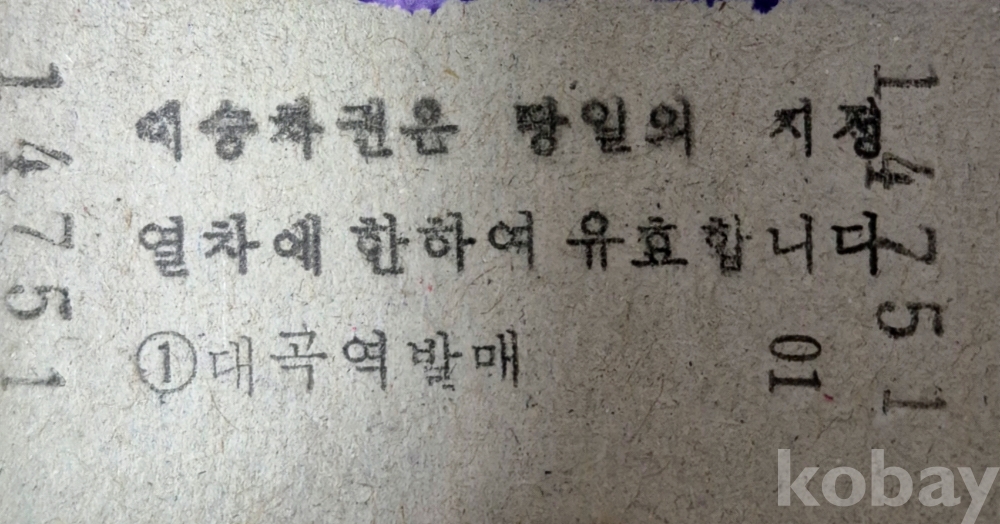 이승차권은 당일의 지정
열차에 한하여 유효합니다
①대곡역발매
01
14751
14751
kobay